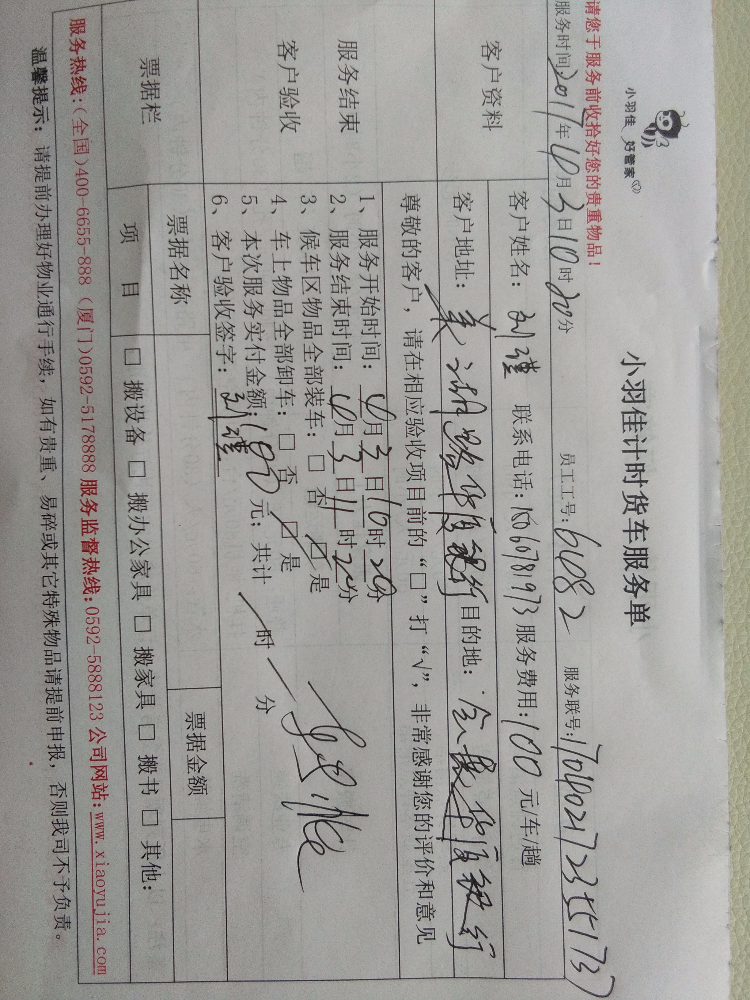 小羽佳 好管家
小羽佳计时货车服务单
请您于服务前收拾好您的贵重物品!
员工工号: 6082 服务联号:
服务时间2017年6月3日10时20分
客户资料
客户姓名: 刘瑾 联系电话: 服务费用:180元/车/趟
客户地址: 美湖路华夏银行 目的地: 会展华夏银行
尊敬的客户,请在相应验收项目前的“□”打“√”,非常感谢您的评价和意见
服务结束
客户验收
1、服务开始时间: 6月3日10时20分
2、服务结束时间: 6月3日11时20分
3、候车区物品全部装车: □ 否 ☑ 是
4、车上物品全部卸车: □ 否 ☑ 是
5、本次服务实付金额:180元;共计 / 时 / 分
6、客户验收签字: 刘瑾
票据栏
票据名称 票据金额
项 目 □ 搬设备 □ 搬办公家具 □ 搬家具 □ 搬书 □ 其他:
服务热线:(全国)400-6655-888 (厦门)0592-5178888 服务监督热线:0592-5888123 公司网站:www.xiaoyujia.com
温馨提示: 请提前办理好物业通行手续,如有贵重、易碎或其它特殊物品请提前申报,否则我司不予负责。